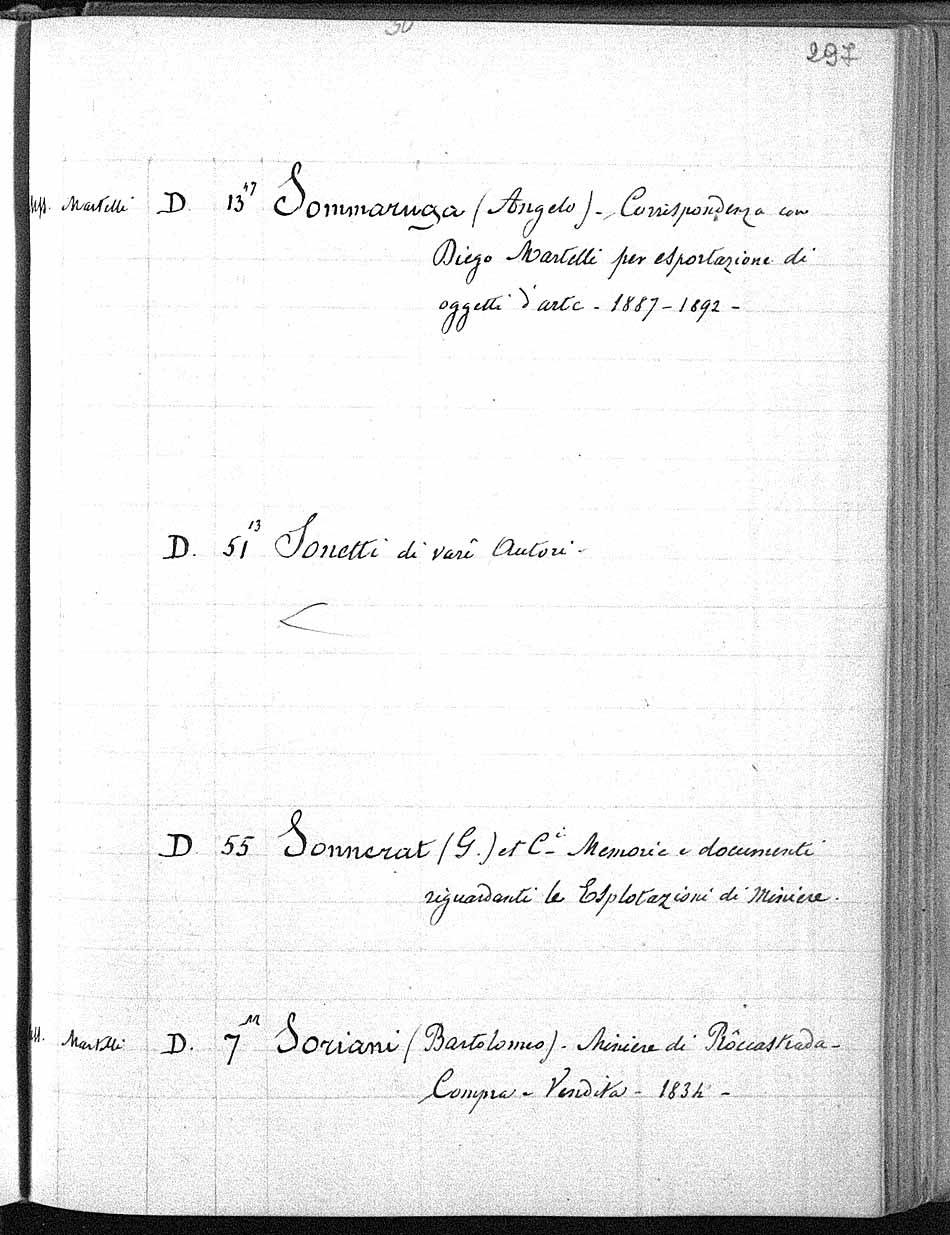 So
297
Mss. Martelli D. 13 47 Sommaruga (Angelo) - Corrispondenza con
Diego Martelli per esportazione di
oggetti d'arte - 1887 - 1892 -
D. 51 13 Sonetti di varî Autori -
D 55 Sonnerat (G.) et C.i - Memorie e documenti
riguardanti le Esplotazioni di Miniere.
Mss. Martelli D. 7 Soriani (Bartolomeo) - Miniere di Roccastrada -
Compra e Vendita - 1834 -